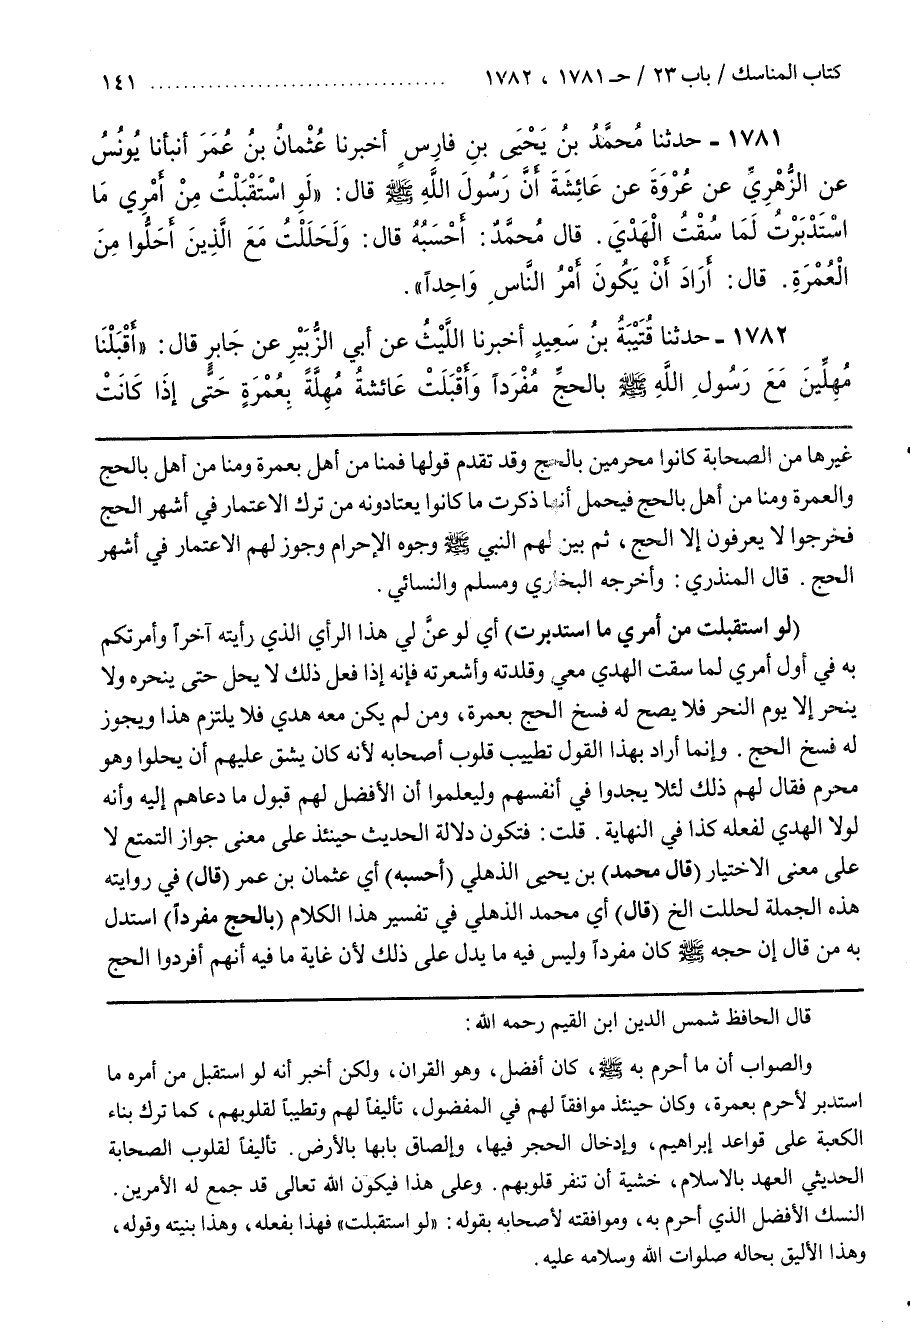 كتاب المناسك / باب ٢٣ / حـ ١٧٨١ ، ١٧٨٢ .................................... ١٤١
١٧٨١ ـ حدثنا مُحمَّدُ بنُ يَحْيَى بنِ فارِسٍ أخبرنا عُثْمانُ بنُ عُمَرَ أنبأنا يُونُسُ
عن الزُّهْرِيِّ عن عُرْوَةَ عن عَائِشَةَ أَنَّ رَسُولَ اللَّهِ ﷺ قال: «لَوِ اسْتَقْبَلْتُ مِنْ أَمْرِي مَا
اسْتَدْبَرْتُ لَمَا سُقْتُ الْهَدْيَ. قال مُحمَّدٌ: أَحْسَبُهُ قال: وَلَحَلَلْتُ مَعَ الَّذِينَ أَحَلُّوا مِنَ
الْعُمْرَةِ. قال: أَرَادَ أَنْ يَكُونَ أَمْرُ النَّاسِ وَاحِداً».
١٧٨٢ ـ حدثنا قُتَيْبَةُ بنُ سَعِيدٍ أخبرنا اللَّيْثُ عن أبي الزُّبَيْرِ عن جَابِرٍ قال: «أَقْبَلْنَا
مُهِلِّينَ مَعَ رَسُولِ اللَّهِ ﷺ بالحجِّ مُفْرَداً وَأَقْبَلَتْ عَائشةُ مُهِلَّةً بِعُمْرَةٍ حَتَّى إذَا كَانَتْ
غيرها من الصحابة كانوا محرمين بالحج وقد تقدم قولها فمنا من أهل بعمرة ومنا من أهل بالحج
والعمرة ومنا من أهل بالحج فيحمل أنها ذكرت ما كانوا يعتادونه من ترك الاعتمار في أشهر الحج
فخرجوا لا يعرفون إلا الحج، ثم بين لهم النبي ﷺ وجوه الإحرام وجوز لهم الاعتمار في أشهر
الحج. قال المنذري: وأخرجه البخاري ومسلم والنسائي.
(لو استقبلت من أمري ما استدبرت) أي لو عنَّ لي هذا الرأي الذي رأيته آخراً وأمرتكم
به في أول أمري لما سقت الهدي معي وقلدته وأشعرته فإنه إذا فعل ذلك لا يحل حتى ينحره ولا
ينحر إلا يوم النحر فلا يصح له فسخ الحج بعمرة، ومن لم يكن معه هدي فلا يلتزم هذا ويجوز
له فسخ الحج. وإنما أراد بهذا القول تطييب قلوب أصحابه لأنه كان يشق عليهم أن يحلوا وهو
محرم فقال لهم ذلك لئلا يجدوا في أنفسهم وليعلموا أن الأفضل لهم قبول ما دعاهم إليه وأنه
لولا الهدي لفعله كذا في النهاية. قلت: فتكون دلالة الحديث حينئذ على معنى جواز التمتع لا
على معنى الاختيار (قال محمد) بن يحيى الذهلي (أحسبه) أي عثمان بن عمر (قال) في روايته
هذه الجملة لحللت الخ (قال) أي محمد الذهلي في تفسير هذا الكلام (بالحج مفرداً) استدل
به من قال إن حجه ﷺ كان مفرداً وليس فيه ما يدل على ذلك لأن غاية ما فيه أنهم أفردوا الحج
قال الحافظ شمس الدين ابن القيم رحمه الله:
والصواب أن ما أحرم به ﷺ، كان أفضل، وهو القران، ولكن أخبر أنه لو استقبل من أمره ما
استدبر لأحرم بعمرة، وكان حينئذ موافقاً لهم في المفضول، تأليفاً لهم وتطيباً لقلوبهم، كما ترك بناء
الكعبة على قواعد إبراهيم، وإدخال الحجر فيها، وإلصاق بابها بالأرض. تأليفاً لقلوب الصحابة
الحديثي العهد بالاسلام، خشية أن تنفر قلوبهم. وعلى هذا فيكون الله تعالى قد جمع له الأمرين.
النسك الأفضل الذي أحرم به، وموافقته لأصحابه بقوله: «لو استقبلت» فهذا بفعله، وهذا بنيته وقوله،
وهذا الأليق بحاله صلوات الله وسلامه عليه.